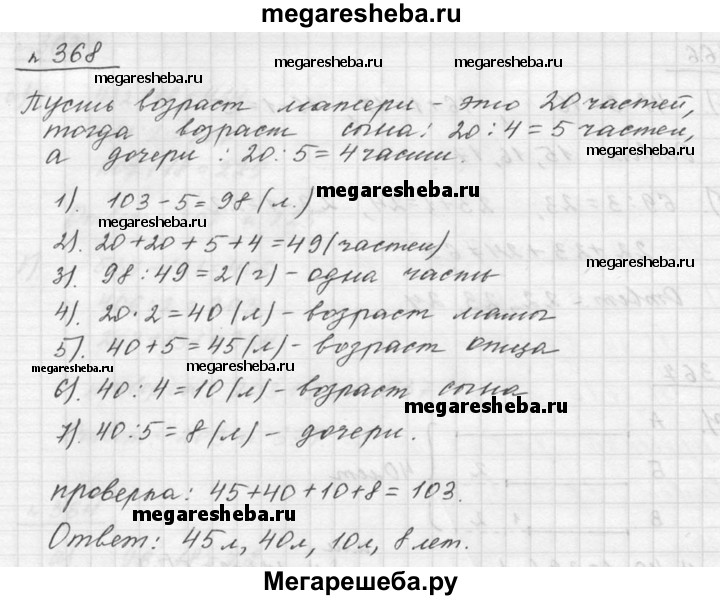 megaresheba.ru
№ 368
megaresheba.ru megaresheba.ru
Пусть возраст матери - это 20 частей,
тогда возраст сына: 20 : 4 = 5 частей,
а дочери : 20 : 5 = 4 части.
megaresheba.ru
1). 103 - 5 = 98 (л.)
megaresheba.ru
2). 20 + 20 + 5 + 4 = 49 (частей)
megaresheba.ru megaresheba.ru
3). 98 : 49 = 2 (г) - одна часть
4). 20 · 2 = 40 (л) - возраст мамы
5). 40 + 5 = 45 (л) - возраст отца
megaresheba.ru megaresheba.ru
6). 40 : 4 = 10 (л) - возраст сына
megaresheba.ru
7). 40 : 5 = 8 (л) - дочери.
проверка: 45 + 40 + 10 + 8 = 103.
megaresheba.ru
Ответ: 45 л, 40 л, 10 л, 8 лет.
Мегарешеба.ру